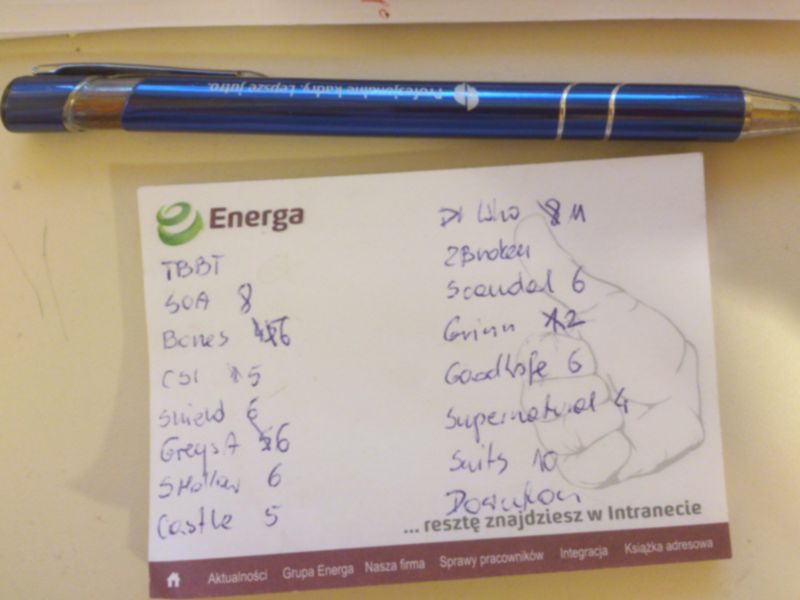 Profesjonalne kadry. Lepsze jutro.
Energa
TBBT
SOA 8
Bones 6
CSI 5
Shield 6
GreysA 6
SHollow 6
Castle 5
Dr Who 11
2Broken
Scandal 6
Grimm 2
GoodWife 6
Supernatural 4
Suits 10
... resztę znajdziesz w Intranecie
Aktualności Grupa Energa Nasza firma Sprawy pracowników Integracja Książka adresowa